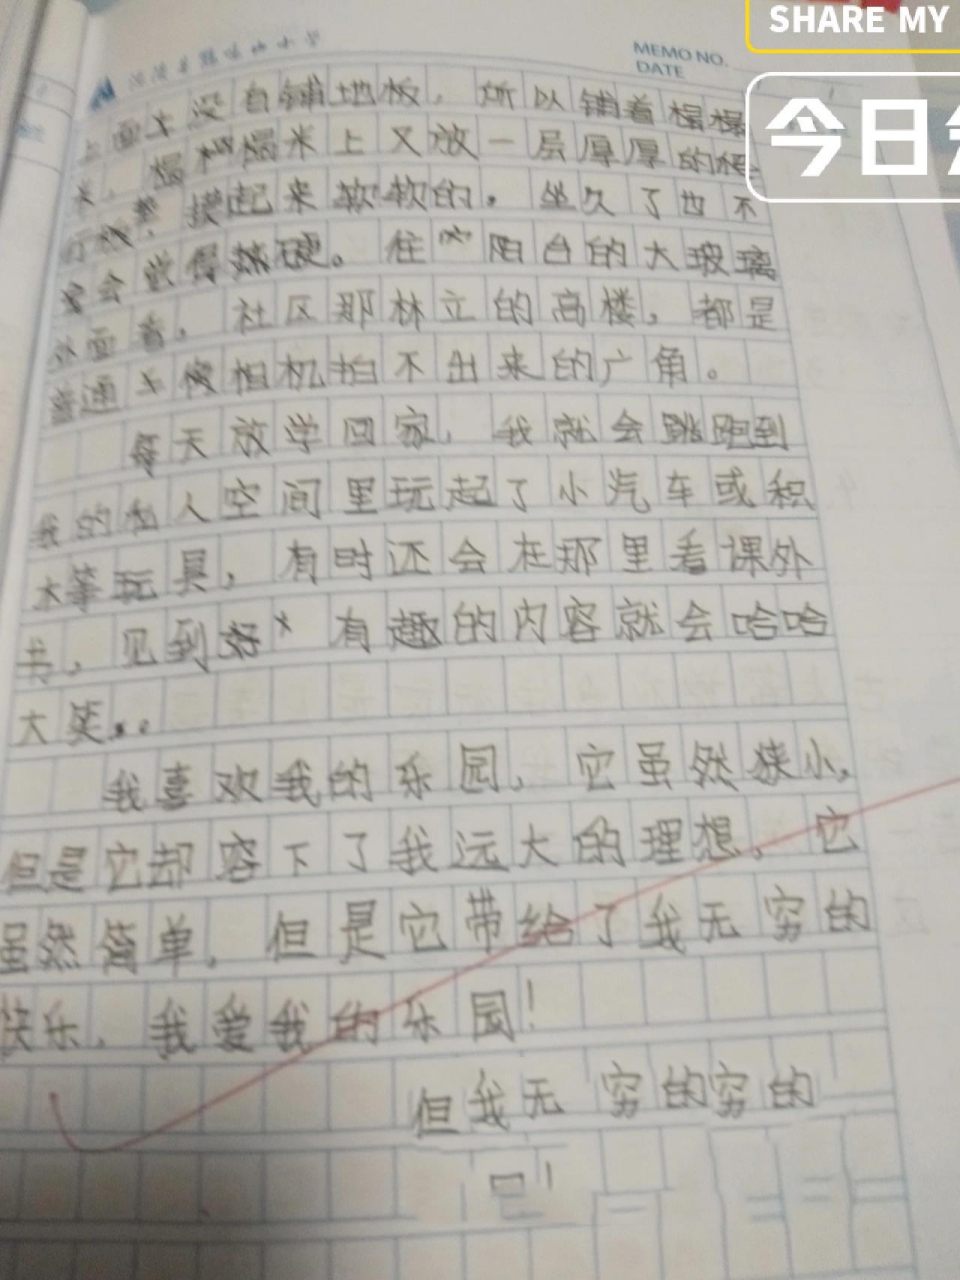 SHARE MY
今日
MEMO NO.
DATE
上面没有铺地板，所以铺着榻榻
米，榻榻米上又放一层厚厚的
摸起来软软的，坐久了也不
会觉得硬。往阳台的大玻璃
外面看，社区那林立的高楼，都是
普通相机拍不出来的广角。
每天放学回家，我就会跳跑到
我的私人空间里玩起了小汽车或积
木等玩具，有时还会在那里看课外
书，见到好有趣的内容就会哈哈
大笑。
我喜欢我的乐园，它虽然狭小，
但是它却容下了我远大的理想，它
虽然简单，但是它带给了我无穷的
快乐，我爱我的乐园！
但我无穷的穷的